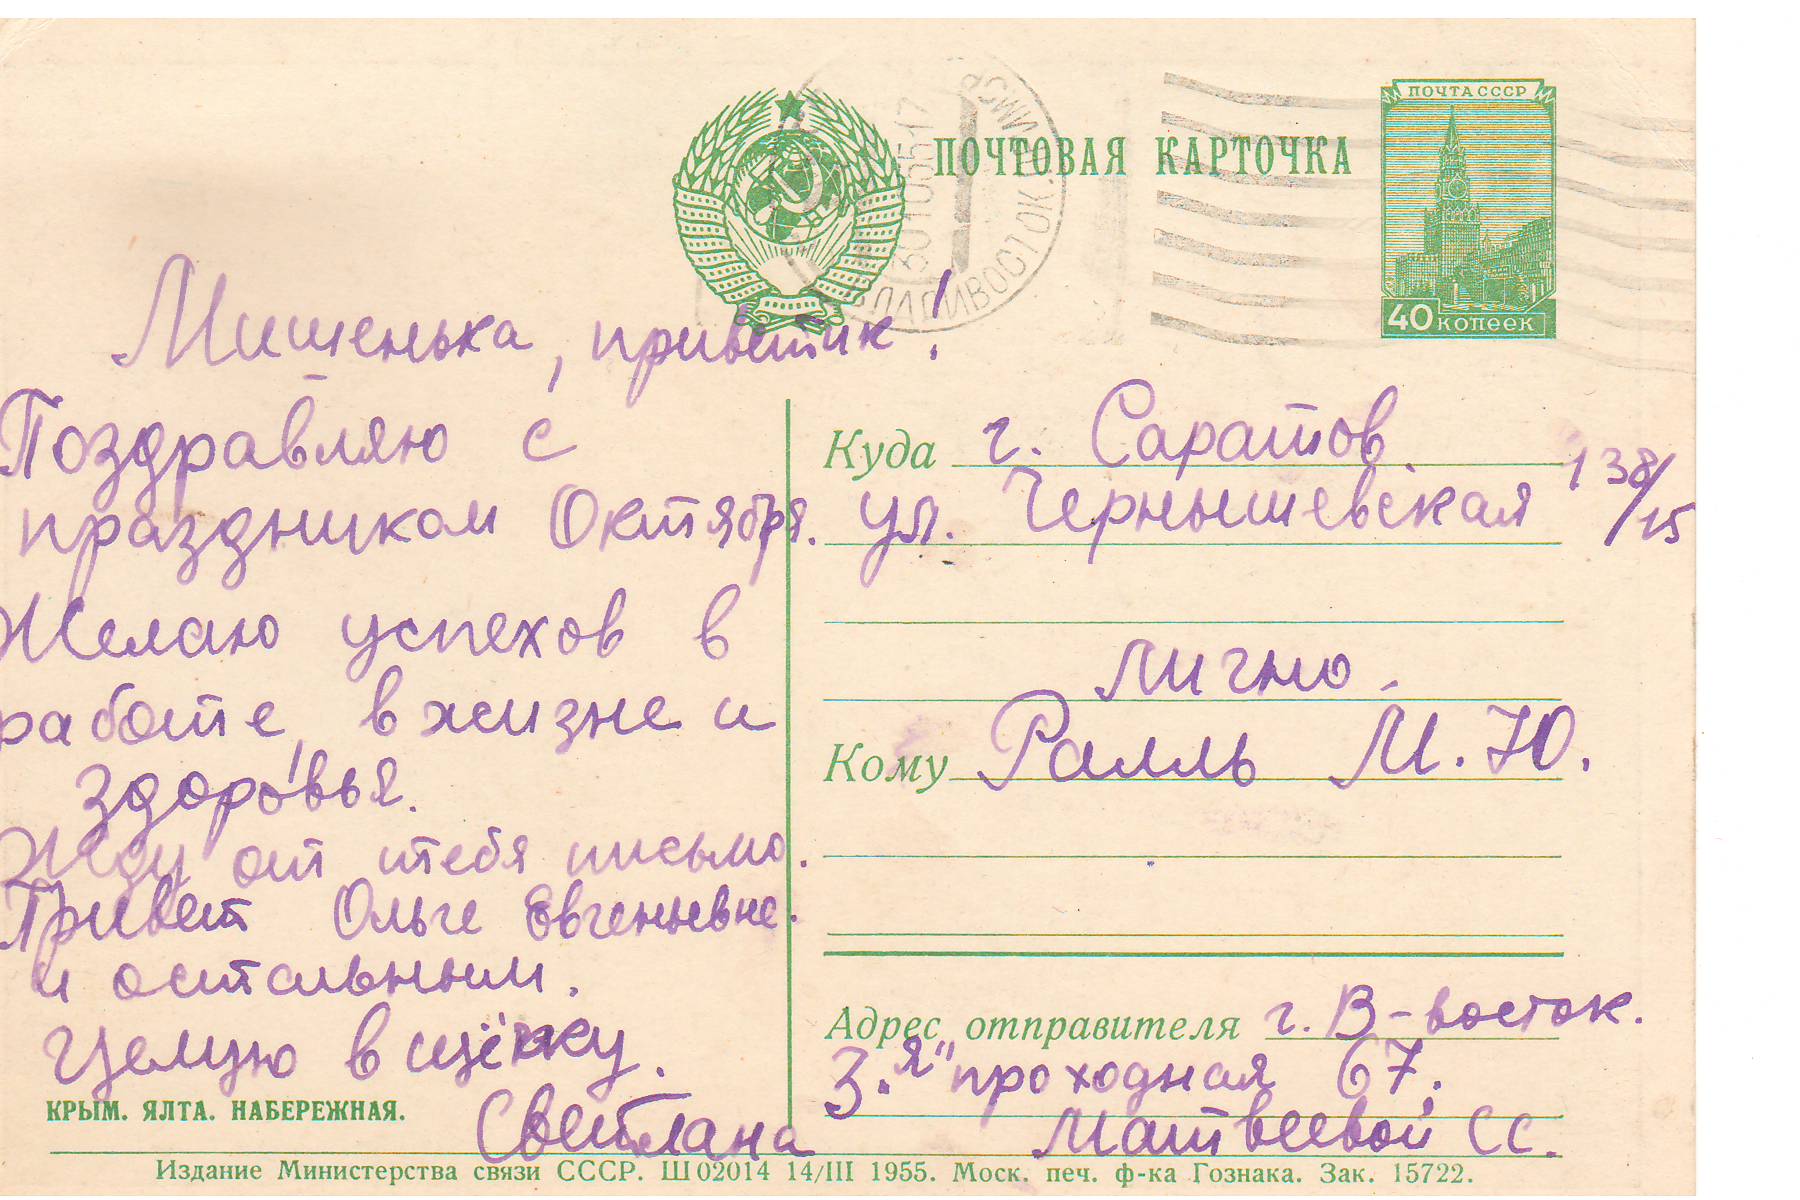 ПОЧТА СССР
ПОЧТОВАЯ КАРТОЧКА
40 КОПЕЕК
ВЛАДИВОСТОК
301055-17
Мишенька, приветик!
Поздравляю с
праздником Октября.
Желаю успехов в
работе, в жизне и
здоровья.
Жду от тебя письмо.
Привет Ольге Евгеньевне.
и остальным.
Целую в щёчку.
Светлана
КРЫМ. ЯЛТА. НАБЕРЕЖНАЯ.
Куда г. Саратов.
ул. Чернышевская 138/15
Лично.
Кому Ралль М. Ю.
Адрес отправителя г. В-восток.
3.я" проходная 67.
Матвеевой СС.
Издание Министерства связи СССР. Ш 02014 14/III 1955. Моск. печ. ф-ка Гознака. Зак. 15722.